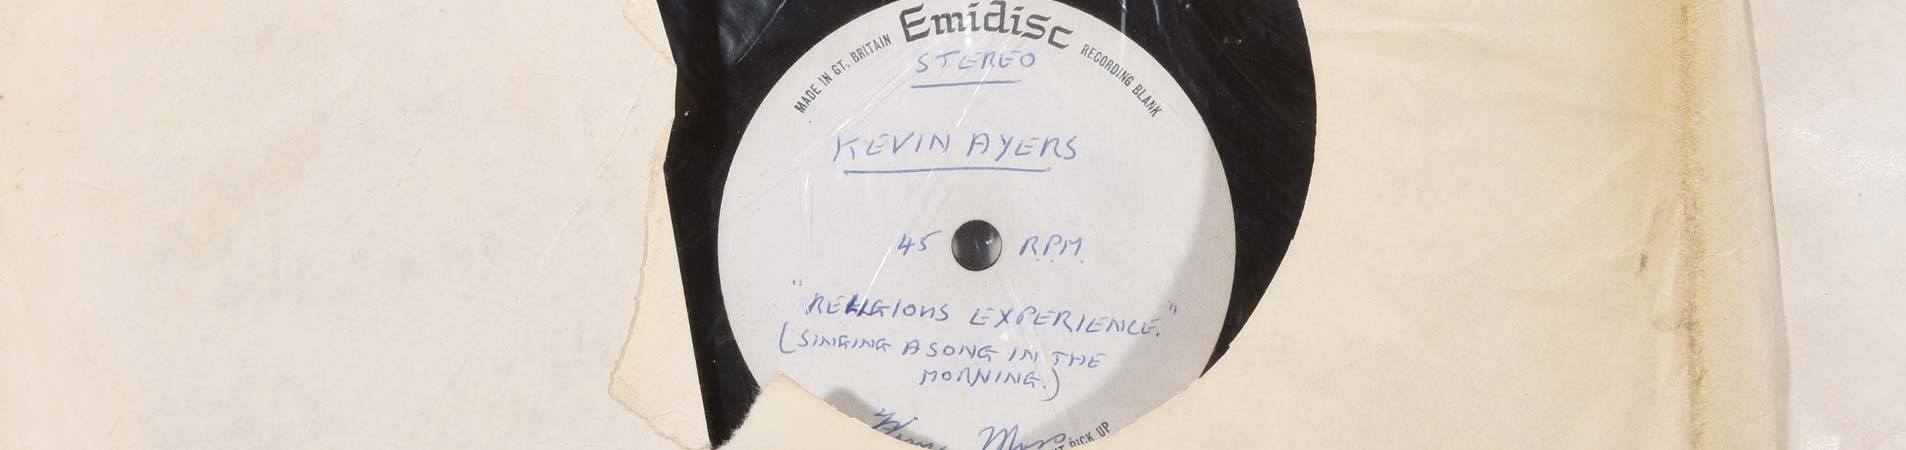 Emidisc
MADE IN GT. BRITAIN
RECORDING BLANK
STEREO
KEVIN AYERS
45 R.P.M.
"RELIGIOUS EXPERIENCE."
(SINGING A SONG IN THE
MORNING.)
PICK UP